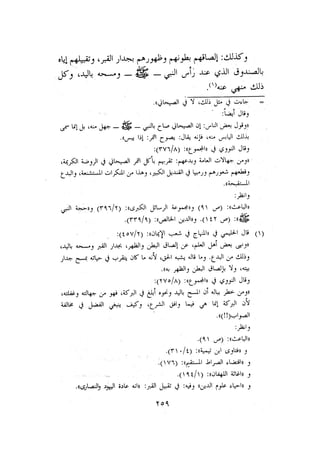 وكذلك: إلصاقهم بطونهم وظهورهم بجدار القبر، وتقبيلهم إياه
بالصندوق الذي عند رأس النبي ــ ﷺ ــ ومسحه باليد، وكل
ذلك منهي عنه(١).
= جاءت في مثل ذلك، لا في الصيحاني».
وقال أيضاً:
«وقول بعض الناس: إن الصيحاني صاح بالنبي ــ ﷺ ــ جهل منه، بل إنما سمى
بذلك اليابس منه، فإنه يقال: يصوح التمر: إذا يبس».
وقال النووي في «المجموع»: (٣٧٦/٨):
«ومن جهالات العامة وبدعهم: تقربهم بأكل التمر الصيحاني في الروضة الكريمة،
وقطعهم شعورهم ورميها في القنديل الكبير، وهذا من المنكرات المستشنعة، والبدع
المستقبحة».
وانظر:
«الباعث»: (ص ٩١) و«مجموعة الرسائل الكبرى»: (٣٩٦/٢) و«حجة النبي
ﷺ»: (ص ١٤٢). و«الدين الخالص»: (٣٣٩/٩).
(١) قال الحليمي في «المنهاج في شعب الإيمان»: (٤٥٧/٢):
«ونهى بعض أهل العلم، عن إلصاق البطن والظهر، بجدار القبر ومسحه باليد،
وذلك من البدع. وما قاله يشبه الحق، لأنه ما كان يتقرب في حياته بمسح جدار
بيته، ولا بإلصاق البطن والظهر به».
وقال النووي في «المجموع»: (٢٧٥/٨):
«ومن خطر بباله أن المسح باليد ونحوه أبلغ في البركة، فهو من جهالته وغفلته،
لأن البركة إنما هي فيما وافق الشرع، وكيف ينبغي الفضل في مخالفة
الصواب(!!)».
وانظر:
«الباعث»: (ص ٩١).
و «فتاوى ابن تيمية»: (٣١٠/٤).
و «اقتضاء الصراط المستقيم»: (١٧٦).
و «إغاثة اللهفان»: (١٩٤/١).
و «إحياء علوم الدين» وفيه: في تقبيل القبر: «إنه عادة اليهود والنصارى».
٢٥٩